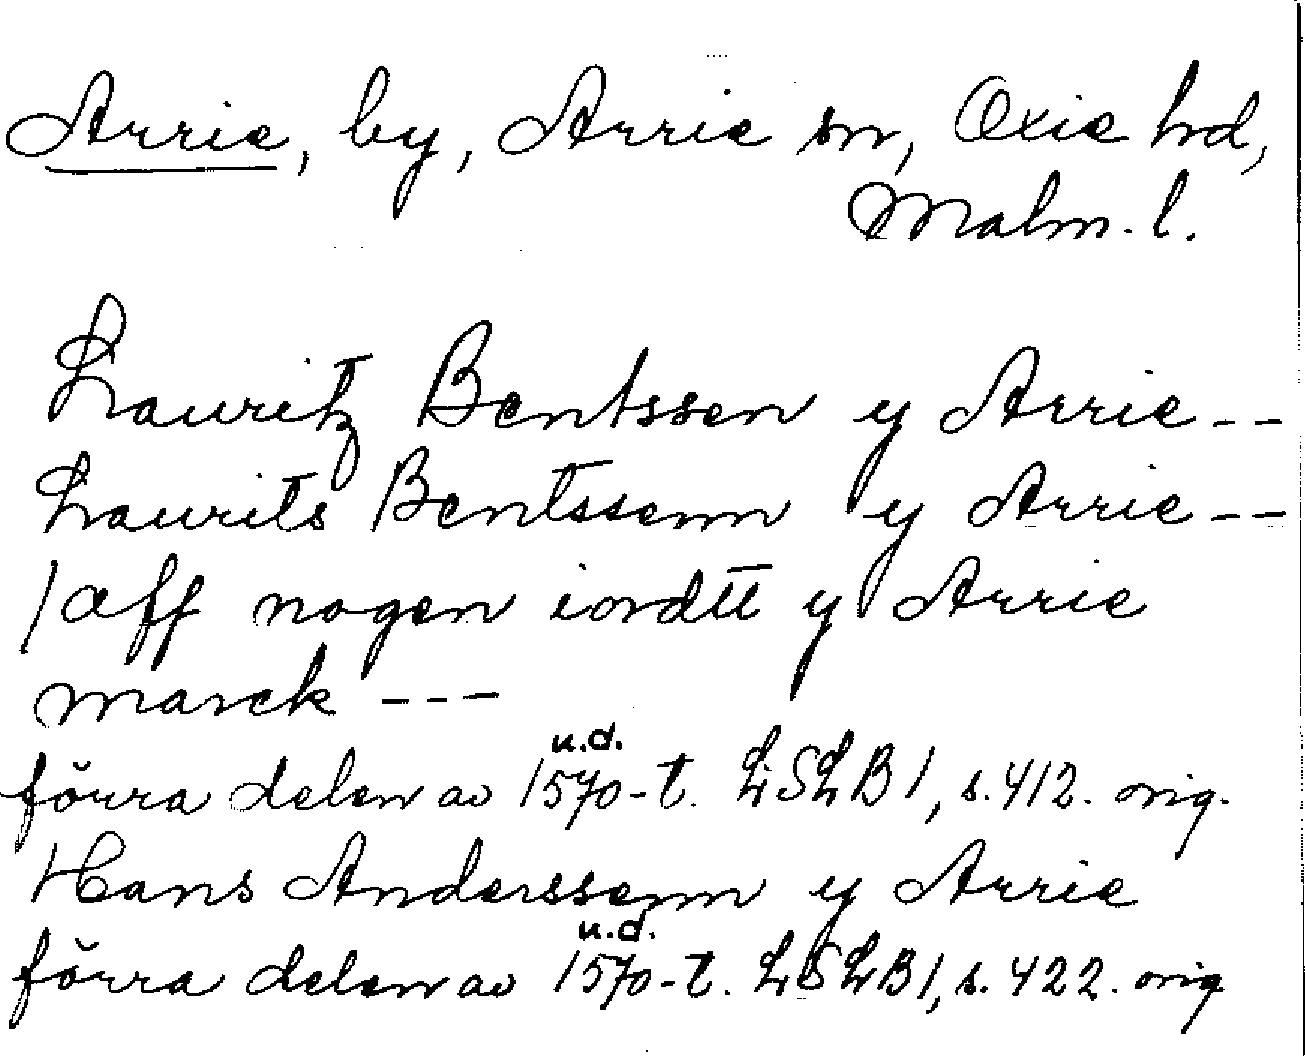 Arrie, by, Arrie sn, Oxie hd,
Malm. l.
Lauritz Bentssen y Arrie --
Laurits Bentssenn y Arrie --
/ aff nogen iordtt y Arrie
marck ---
u.d.
förra delen av 1570-t. LSLB 1, s. 412. orig.
Hans Anderssenn y Arrie
u.d.
förra delen av 1570-t. LSLB 1, s. 422. orig